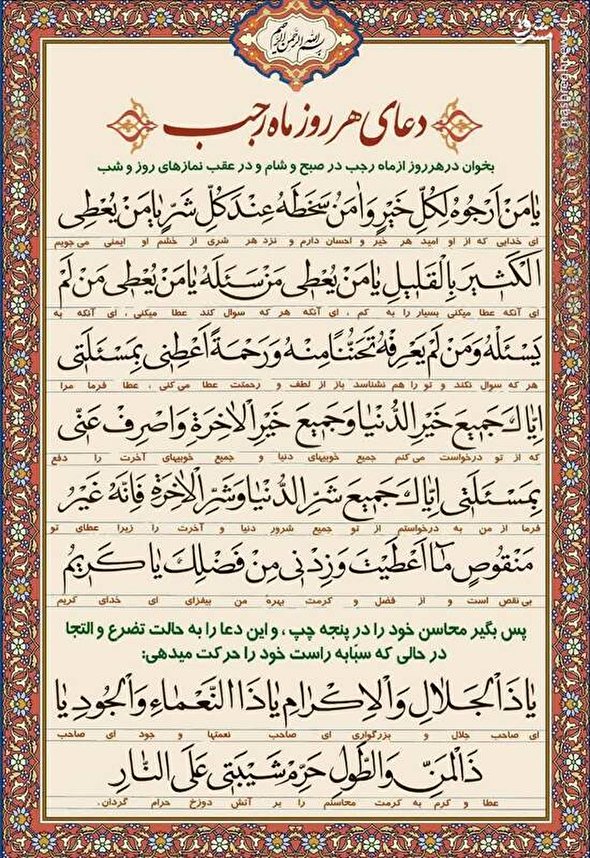 بسم الله الرحمن الرحیم
مشرق
mashreghnews.ir
دعای هر روز ماه رجب
بخوان در هر روز از ماه رجب در صبح و شام و در عقب نمازهای روز و شب
یا مَنْ اَرْجُوهُ لِکُلِّ خَیْرٍ وَ اٰمَنُ سَخَطَهُ عِنْدَ کُلِّ شَرٍّ یا مَنْ یُعْطِی
ای خدایی که از او امید هر خیر و احسان دارم و نزد هر شری از خشم او ایمنی می جویم
الْکَثیرَ بِالْقَلیلِ یا مَنْ یُعْطی مَنْ سَئَلَهُ یا مَنْ یُعْطی مَنْ لَمْ
ای آنکه عطا میکنی بسیار را به کم ، ای آنکه هر که سوال کند عطا میکنی ، ای آنکه به
یَسْئَلْهُ وَ مَنْ لَمْ یَعْرِفْهُ تَحَنُّنًا مِنْهُ وَ رَحْمَةً اَعْطِنی بِمَسْئَلَتی
هر که سوال نکند و تو را هم نشناسد باز از لطف و رحمتت عطا می کنی ، عطا فرما مرا
اِیّاکَ جَمیعَ خَیْرِ الدُّنْیا وَ جَمیعَ خَیْرِ الْاٰخِرَةِ وَ اصْرِفْ عَنّی
که از تو درخواست می کنم جمیع خوبیهای دنیا و جمیع خوبیهای آخرت را دفع
بِمَسْئَلَتی اِیّاکَ جَمیعَ شَرِّ الدُّنْیا وَ شَرِّ الْاٰخِرَةِ فَاِنَّهُ غَیْرُ
فرما از من به درخواستم از تو جمیع شرور دنیا و آخرت را زیرا عطای تو
مَنْقُوصٍ مٰا اَعْطَیْتَ وَ زِدْنی مِنْ فَضْلِکَ یا کَریمُ
بی نقص است و از فضل و کرمت بهره من بیفزای ای خدای کریم
پس بگیر محاسن خود را در پنجه چپ ، و این دعا را به حالت تضرع و التجا
در حالی که سبّابه راست خود را حرکت میدهی:
یا ذَا الْجَلالِ وَ الْاِکْرامِ یا ذَا النَّعْماءِ وَ الْجُودِ یا
ای صاحب جلال و بزرگواری ای صاحب نعمتها و جود ای صاحب
ذَا الْمَنِّ وَ الطَّوْلِ حَرِّمْ شَیْبَتی عَلَی النّارِ
عطا و کرم به کرمت محاسنم را بر آتش دوزخ حرام گردان.